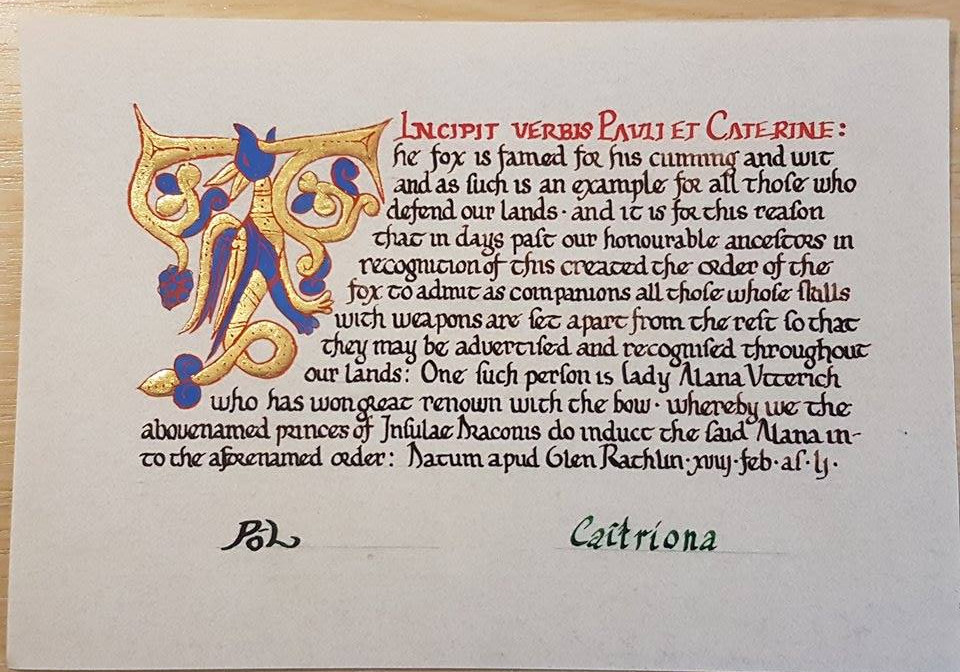 INCIPIT VERBIS PAULI ET CATERINE:
The fox is famed for his cunning and wit
and as ſuch is an example for all thoſe who
defend our lands · and it is for this reaſon
that in days paſt our honourable anceſtors in
recognition of this created the order of the
fox to admit as companions all thoſe whoſe ſkills
with weapons are ſet apart from the reſt ſo that
they may be advertiſed and recogniſed throughout
our lands: One ſuch perſon is lady Alana Utterich
who has won great renown with the bow · whereby we the
abovenamed princes of Inſulae Draconis do induct the ſaid Alana in-
to the aforenamed order: Datum apud Glen Rathlin · xviij · feb · aſ · lj ·
Pól Caitríona